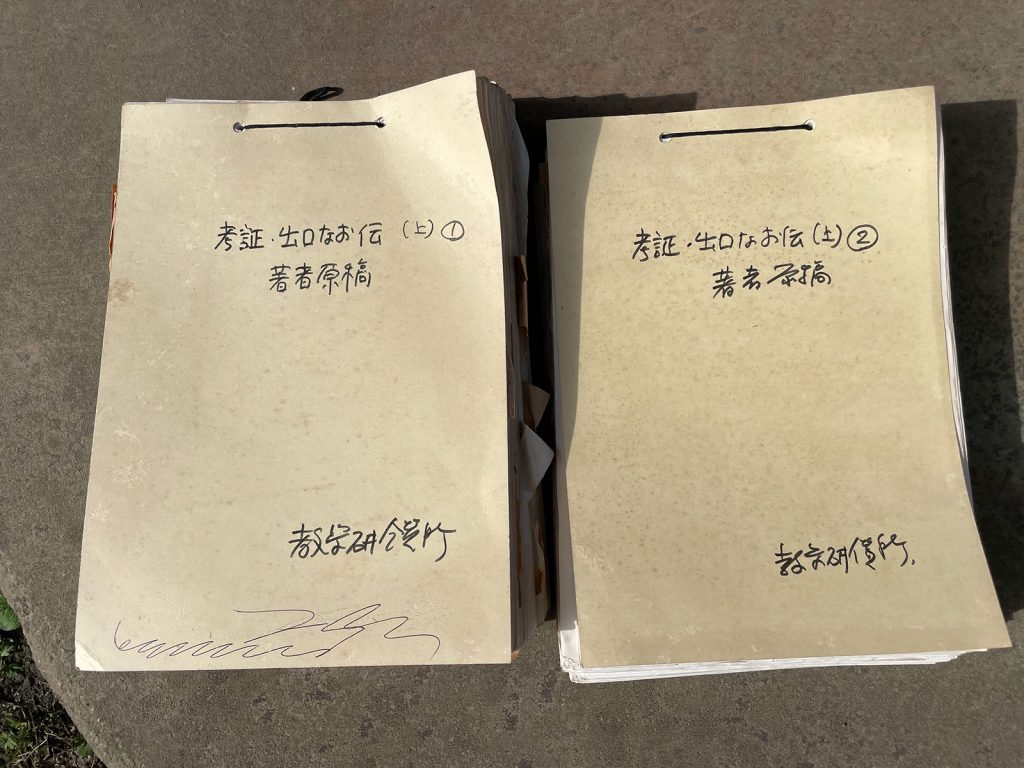 考証・出口なお伝(上)①
著者原稿
教学研鑽所
考証・出口なお伝(上)②
著者原稿
教学研鑽所.